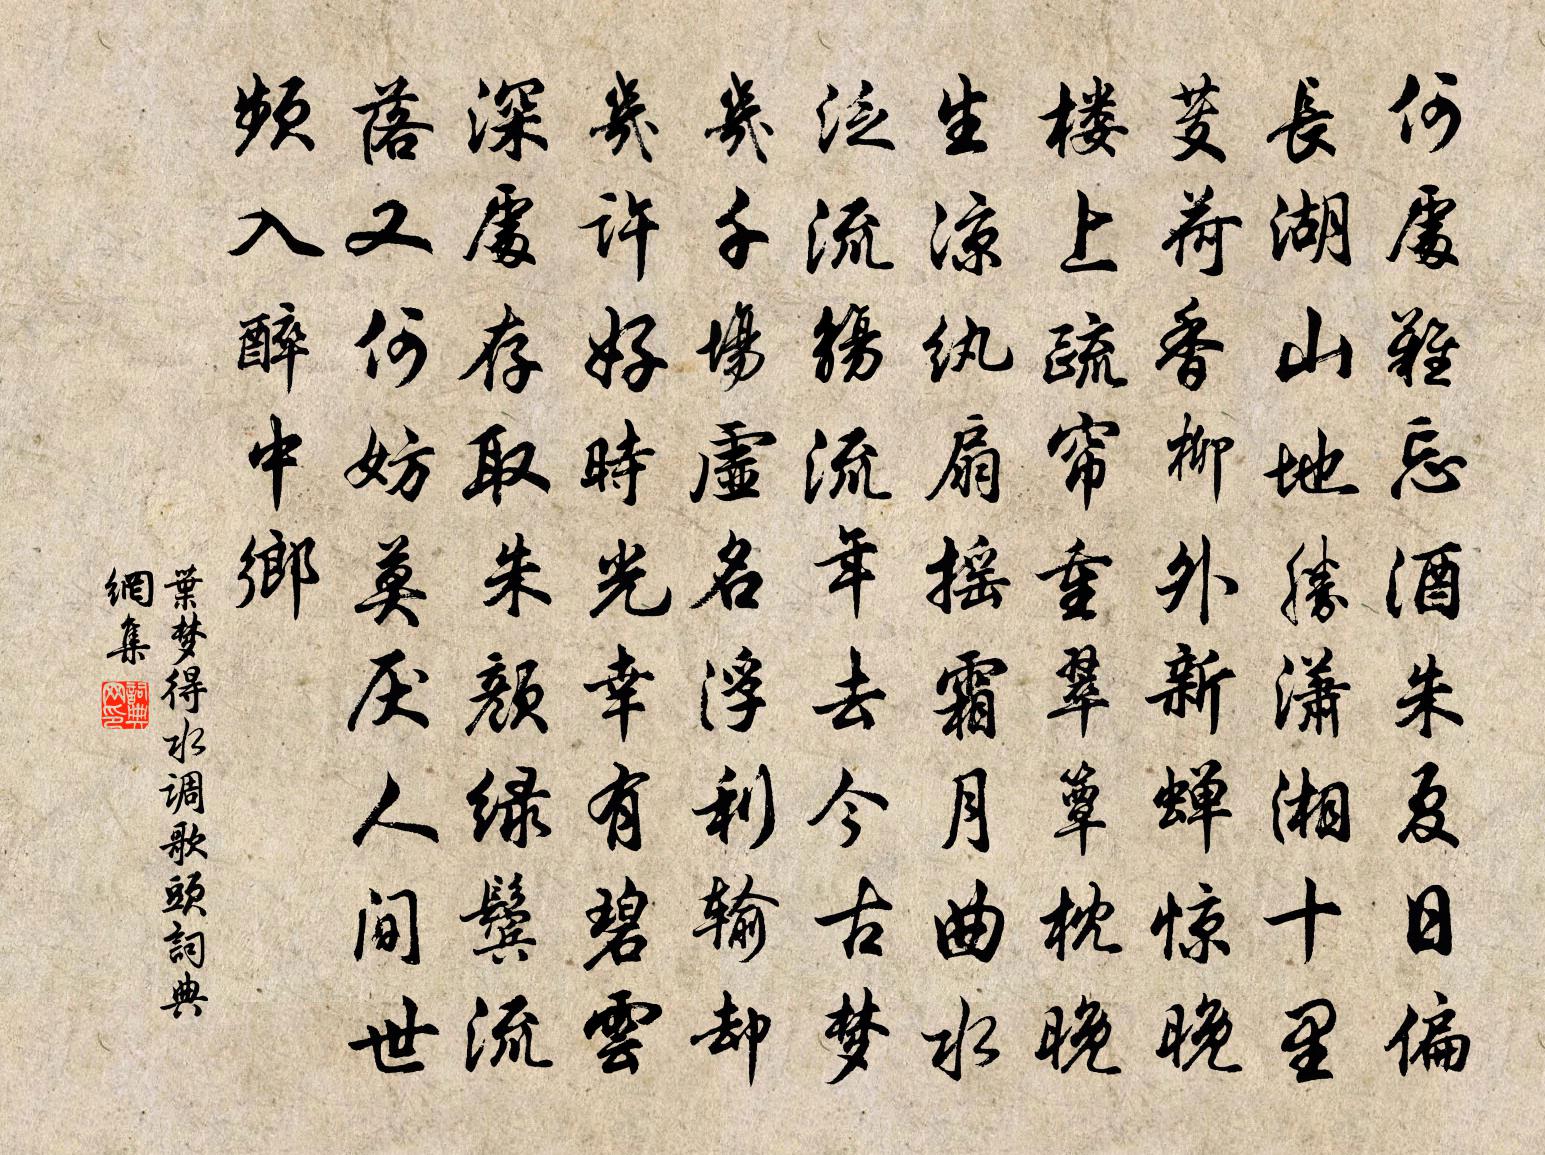 何處難忘酒朱夏日偏
長湖山地勝瀟湘十里
芰荷香柳外新蝉惊晚
楼上疏帘重翠簟枕晚
生凉纨扇摇霜月曲水
泛流觴流年去今古梦
幾千場虛名浮利输却
幾许好時光幸有碧雲
深處存取朱顏绿鬓流
落又何妨莫厌人间世
頻入醉中鄉
葉梦得水调歌頭詞典
網集
詞典網印